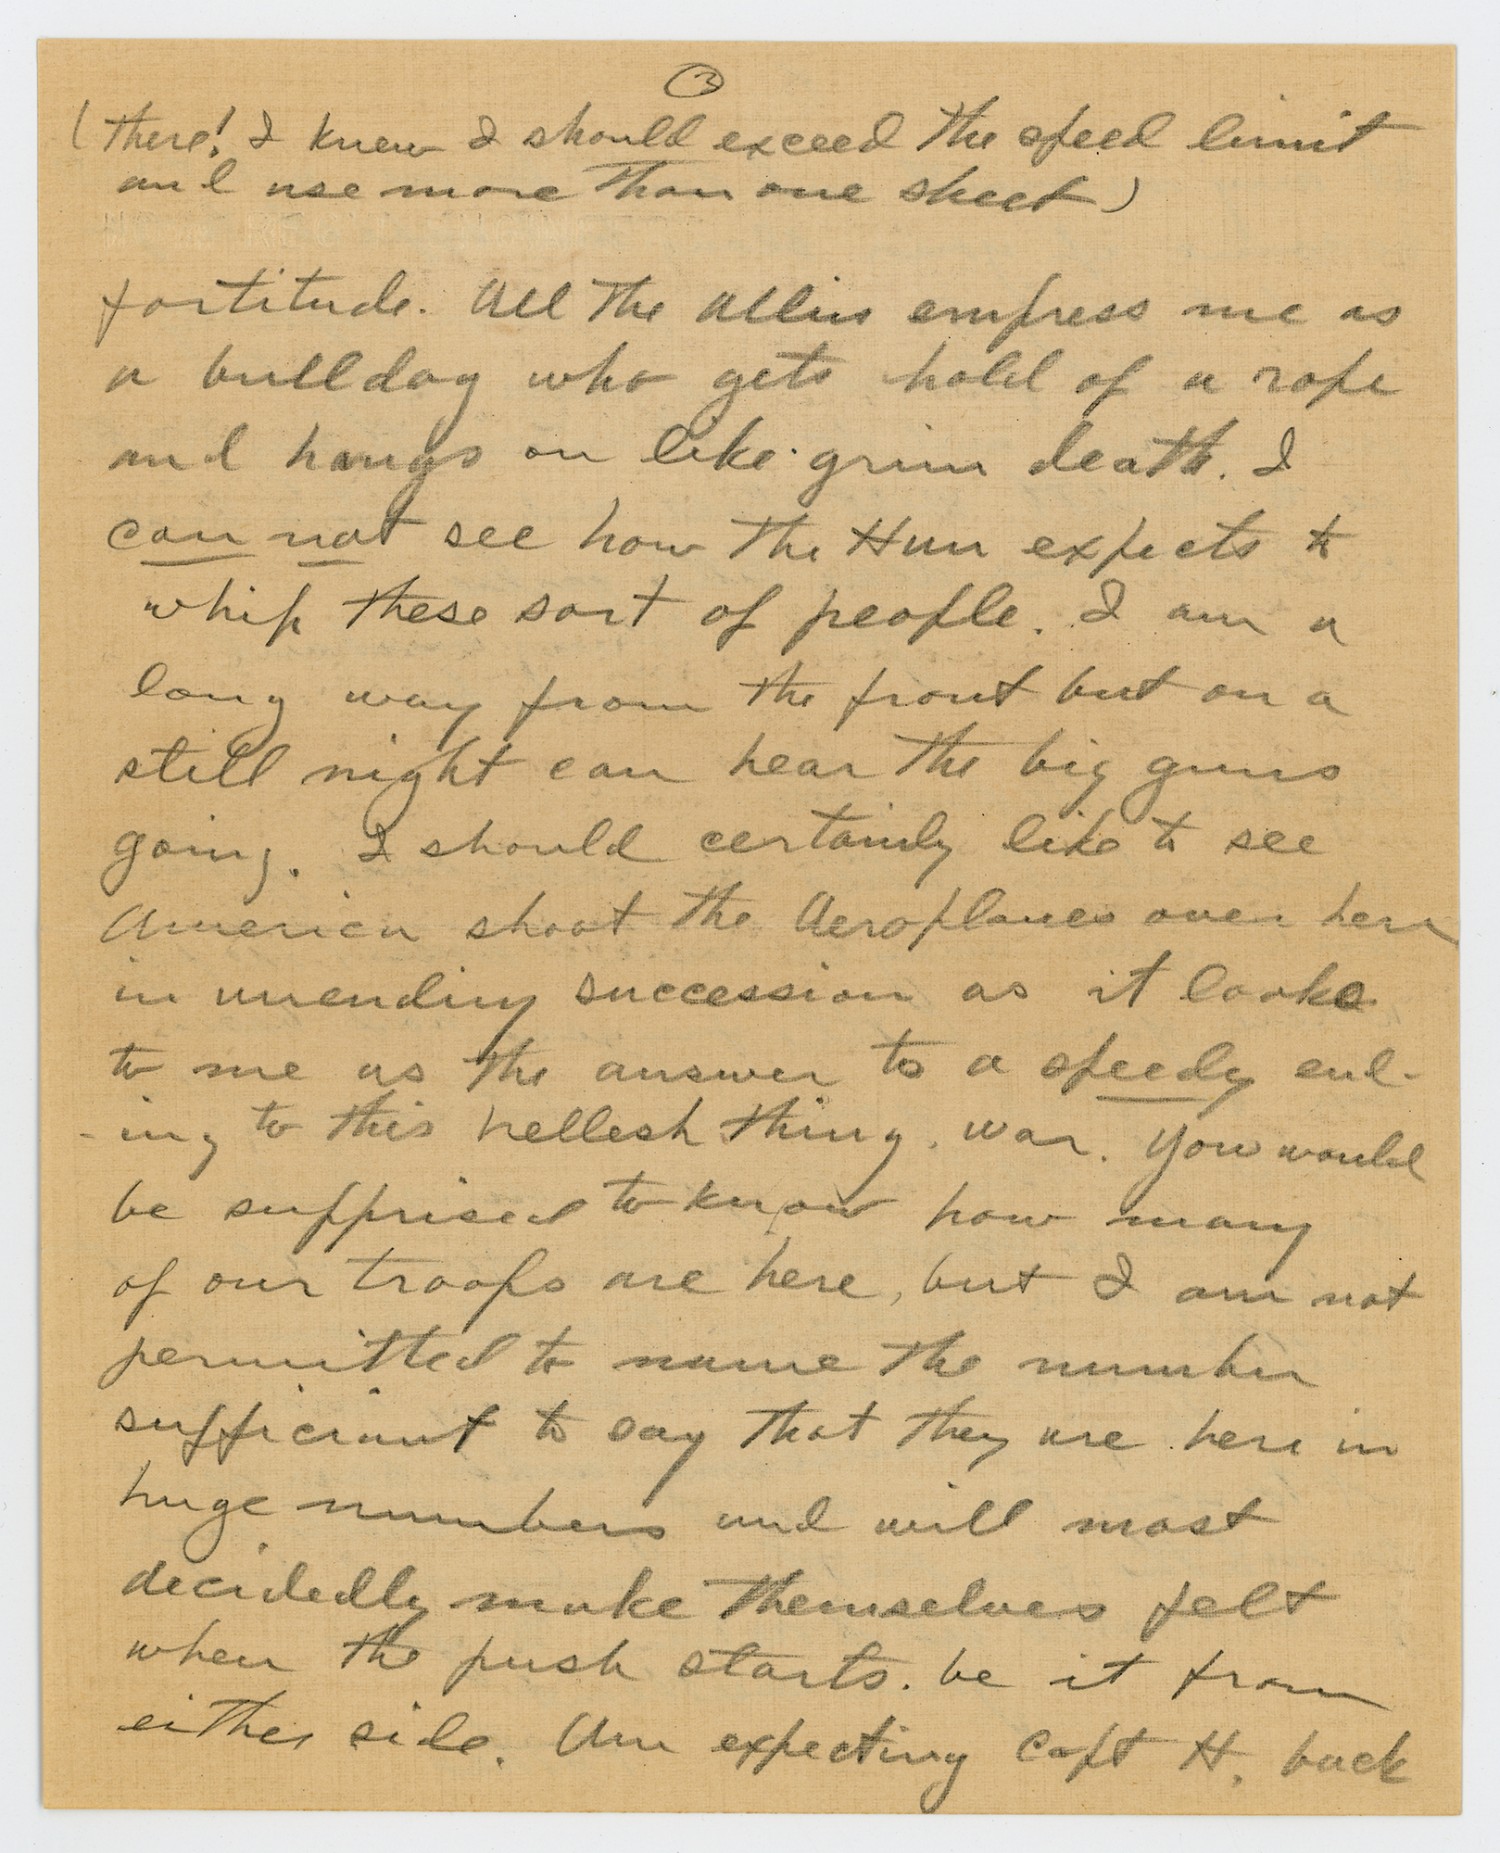 3
(There! I knew I should exceed the speed limit
and use more than one sheet)
fortitude. All the Allies empress me as
a bull dog who gets hold of a rope
and hangs on like grim death. I
can not see how the Hun expects to
whip these sort of people. I am a
long way from the front but on a
still night can hear the big guns
going. I should certainly like to see
America shoot the Aeroplanes over here
in unending succession as it looks
to me as the answer to a speedy end-
-ing to this hellesh thing. war. You would
be supprised to know how many
of our troops are here, but I am not
permitted to name the number
sufficiant to say that they are here in
huge numbers and will most
decidedly make themselves felt
when the push starts. be it from
either side. Am expecting Capt H. back